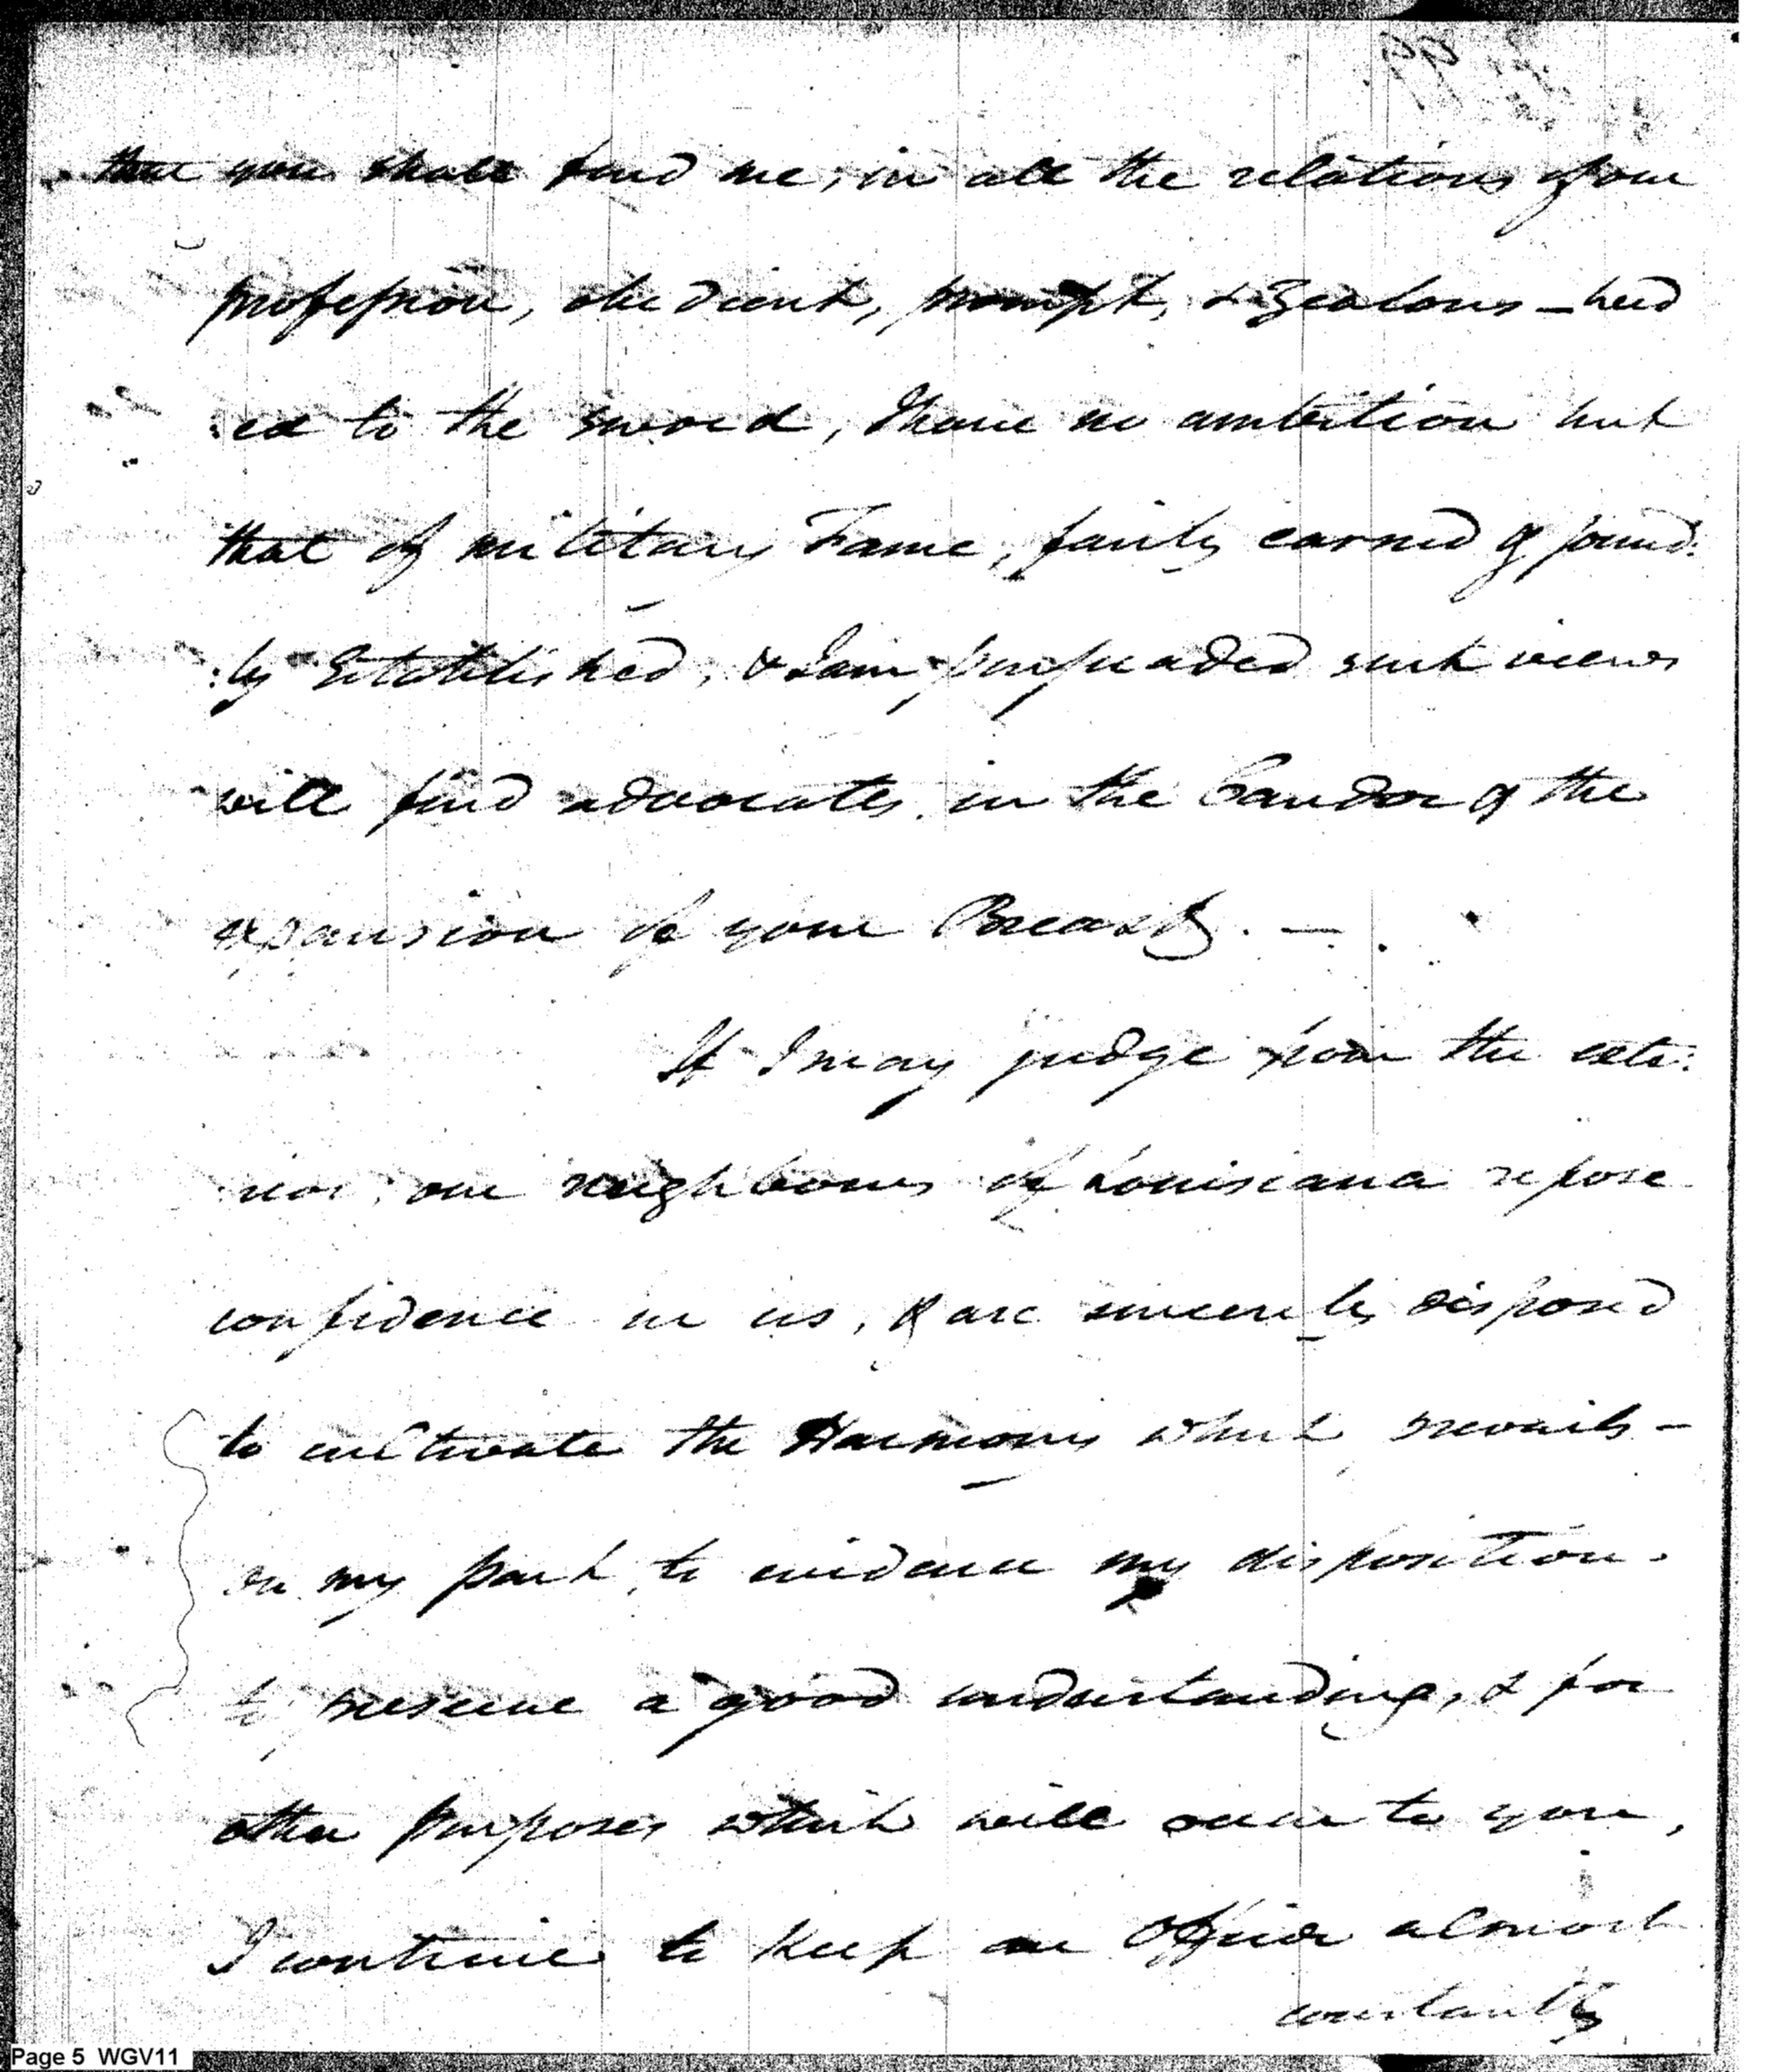 that you shall find me, in all the relations of our
profession, obedient, prompt, & zealous — heed
:ed to the sword, I have no ambition but
that of military Fame, fairly earned & sound:
:ly Established, & I am persuaded such views
will find advocates in the Candor & the
expansion of your Breast. —
If I may judge from the exte:
:rior, our neighbours of Louisiana repose
confidence in us, & are sincerely disposed
to cultivate the Harmony which prevails —
on my part, to evidence my disposition
to preserve a good understanding, & for
other purposes which will occur to you,
I continue to keep an Officer almost
constantly
Page 5 WGV11